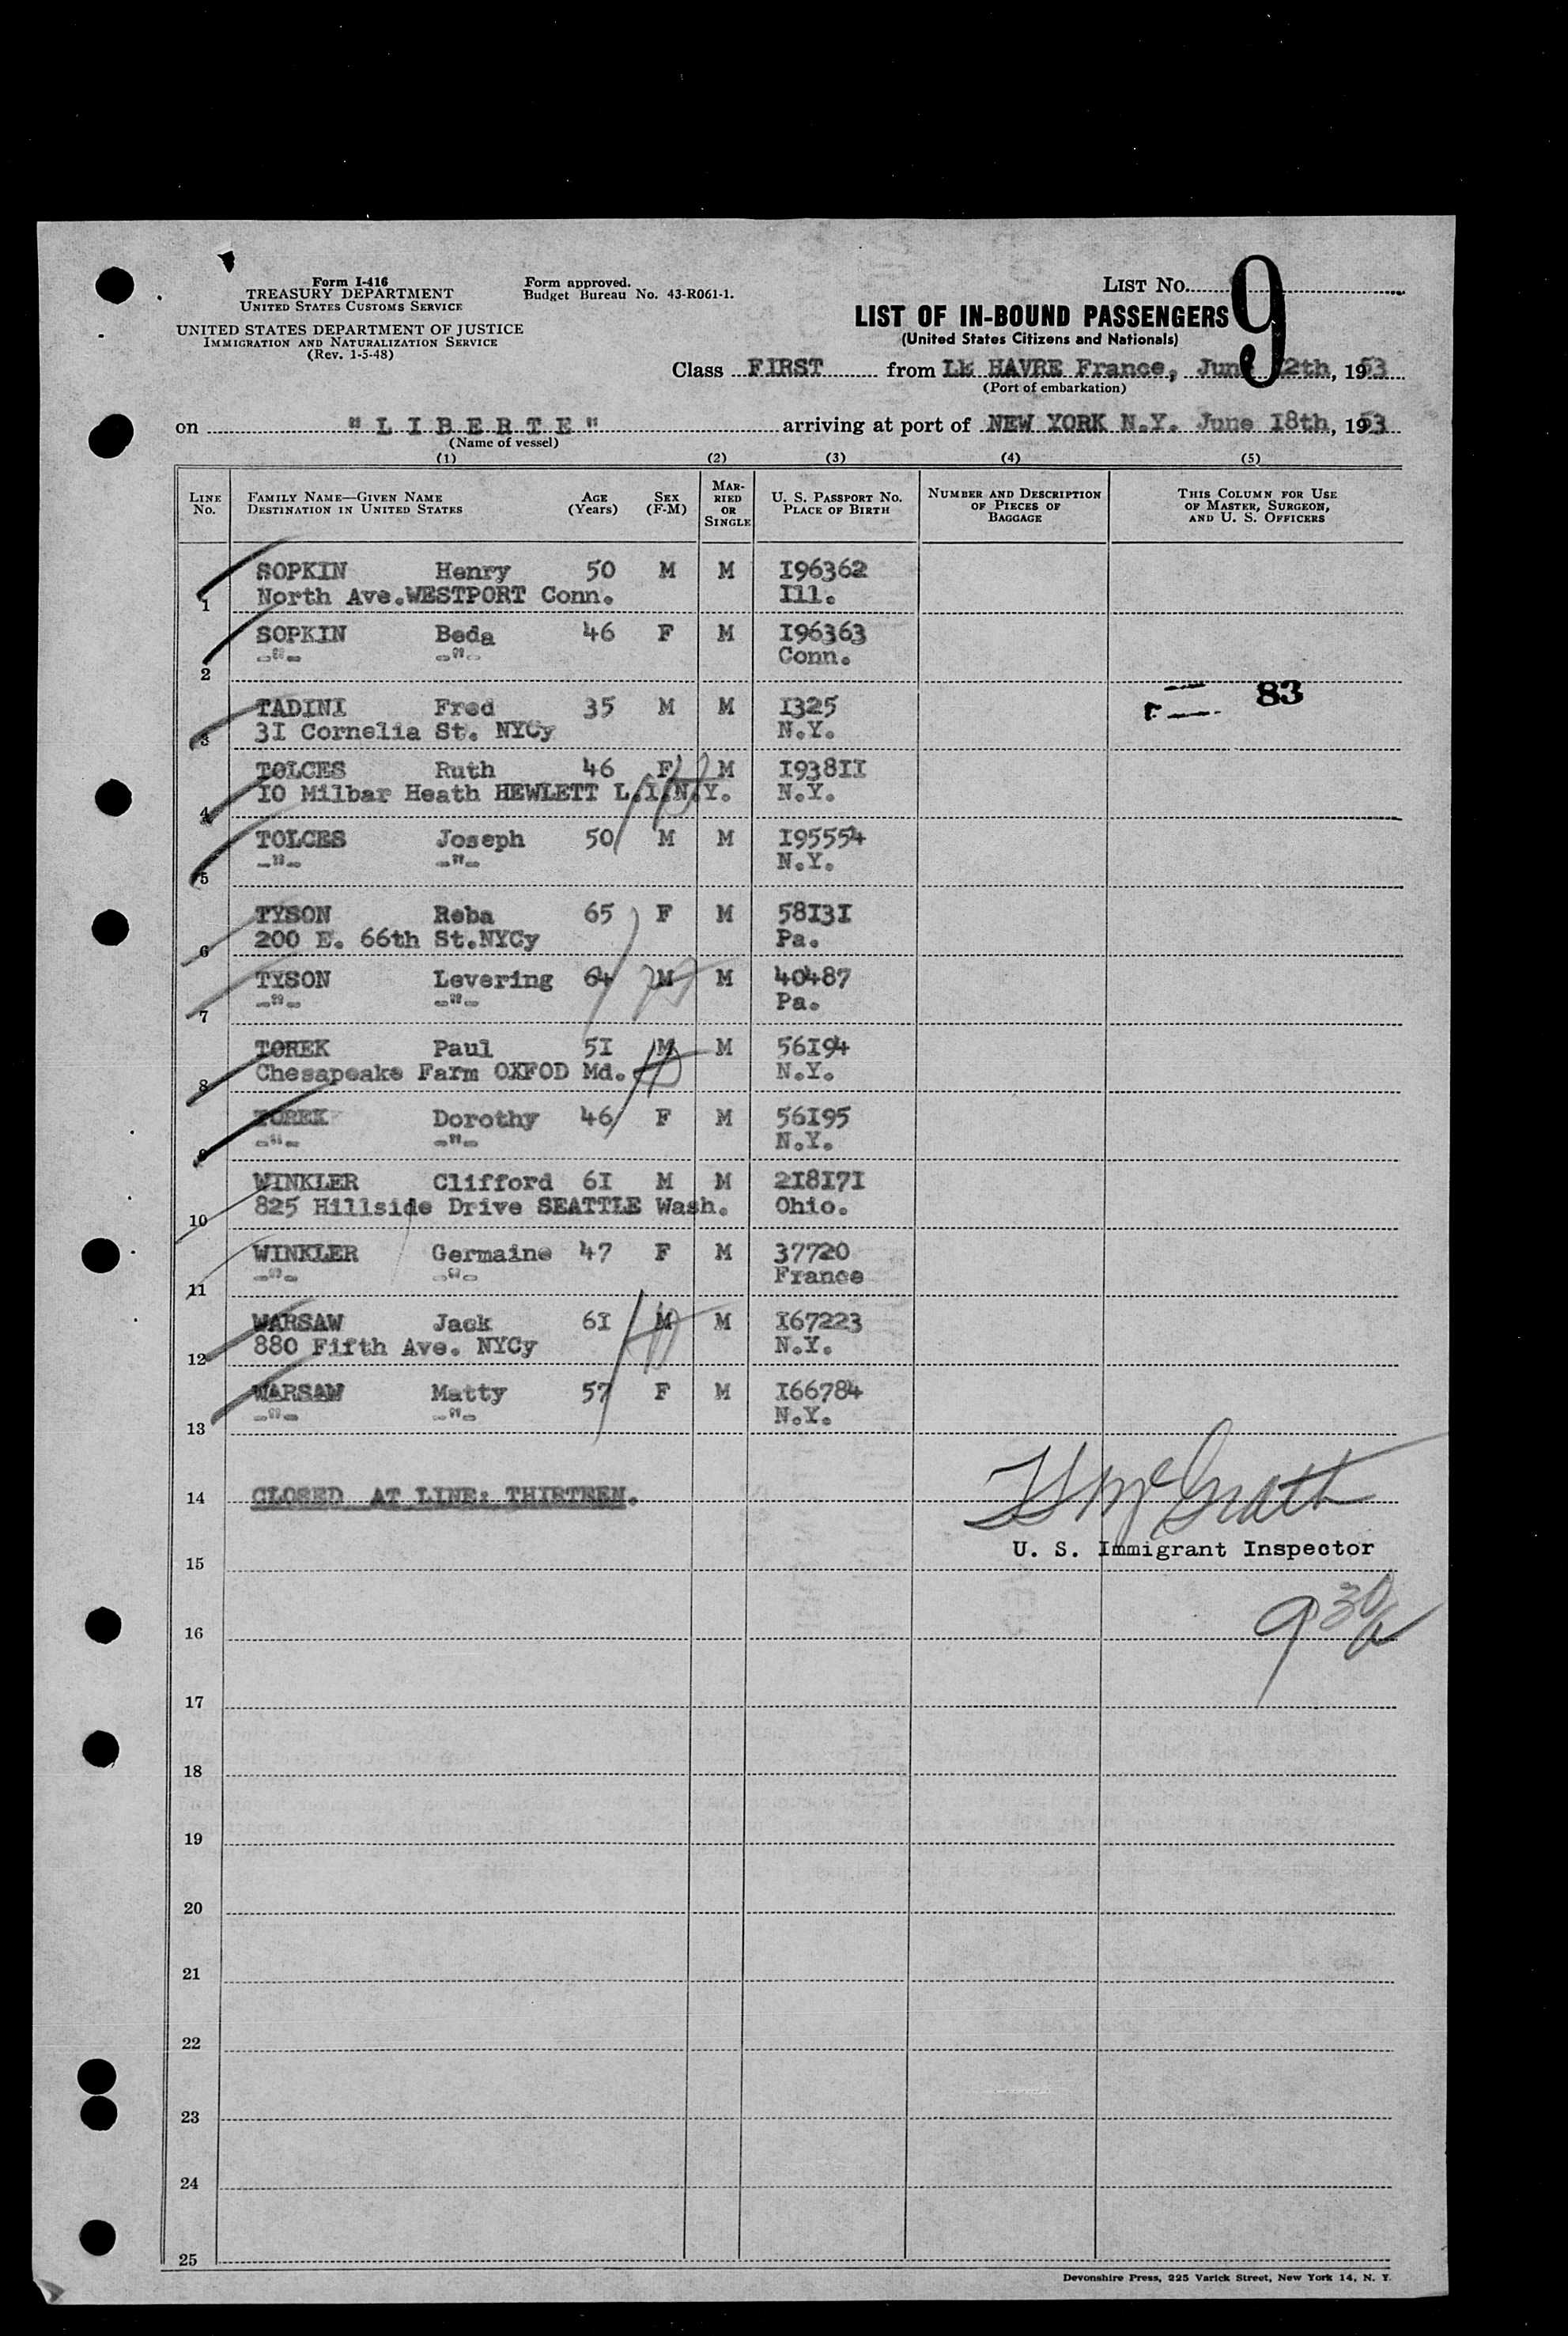 Form I-416
TREASURY DEPARTMENT
UNITED STATES CUSTOMS SERVICE
UNITED STATES DEPARTMENT OF JUSTICE
IMMIGRATION AND NATURALIZATION SERVICE
(Rev. 1-5-48)
Form approved.
Budget Bureau No. 43-R061-1.
LIST NO. 9
LIST OF IN-BOUND PASSENGERS
(United States Citizens and Nationals)
Class FIRST from LE HAVRE France, June 12th, 1953
(Port of embarkation)
on "LIBERTE" arriving at port of NEW YORK N.Y. June I8th, 1953
(Name of vessel)
(1) (2) (3) (4) (5)
LINE NO. FAMILY NAME—GIVEN NAME DESTINATION IN UNITED STATES AGE (Years) SEX (F-M) MARRIED OR SINGLE U. S. PASSPORT NO. PLACE OF BIRTH NUMBER AND DESCRIPTION OF PIECES OF BAGGAGE THIS COLUMN FOR USE OF MASTER, SURGEON, AND U. S. OFFICERS
SOPKIN Henry 50 M M I96362
1 North Ave.WESTPORT Conn. Ill.
SOPKIN Beda 46 F M I96363
2 -"- -"- Conn.
83
TADINI Fred 35 M M I325
3 3I Cornelia St. NYCy N.Y.
TOLCES Ruth 46 F M I938II
4 IO Milbar Heath HEWLETT L.I.N.Y. N.Y.
TOLCES Joseph 50 M M I95554
5 -"- -"- N.Y.
TYSON Reba 65 F M 58I3I
6 200 E. 66th St.NYCy Pa.
TYSON Levering 64 M M 40487
7 -"- -"- Pa.
TOREK Paul 5I M M 56I94
8 Chesapeake Farm OXFOD Md. N.Y.
TOREK Dorothy 46 F M 56I95
9 -"- -"- N.Y.
WINKLER Clifford 6I M M 2I8I7I
10 825 Hillside Drive SEATTLE Wash. Ohio.
WINKLER Germaine 47 F M 37720
11 -"- -"- France
WARSAW Jack 6I M M I67223
12 880 Fifth Ave. NYCy N.Y.
WARSAW Matty 57 F M I66784
13 -"- -"- N.Y.
14 CLOSED AT LINE: THIRTEEN.
U. S. Immigrant Inspector
15
9 30
16
17
18
19
20
21
22
23
24
25
Devonshire Press, 225 Varick Street, New York 14, N. Y.